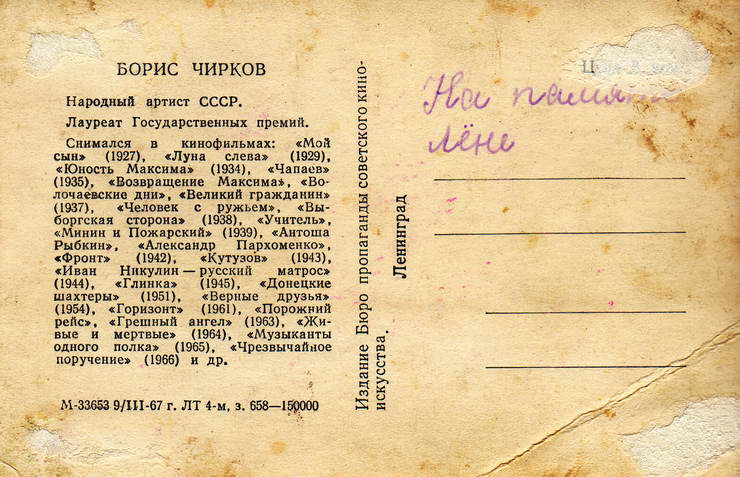 БОРИС ЧИРКОВ
Народный артист СССР.
Лауреат Государственных премий.
Снимался в кинофильмах: «Мой
сын» (1927), «Луна слева» (1929),
«Юность Максима» (1934), «Чапаев»
(1935), «Возвращение Максима», «Во-
лочаевские дни», «Великий гражданин»
(1937), «Человек с ружьем», «Вы-
боргская сторона» (1938), «Учитель»,
«Минин и Пожарский» (1939), «Антоша
Рыбкин», «Александр Пархоменко»,
«Фронт» (1942), «Кутузов» (1943),
«Иван Никулин — русский матрос»
(1944), «Глинка» (1945), «Донецкие
шахтеры» (1951), «Верные друзья»
(1954), «Горизонт» (1961), «Порожний
рейс», «Грешный ангел» (1963), «Жи-
вые и мертвые» (1964), «Музыканты
одного полка» (1965), «Чрезвычайное
поручение» (1966) и др.
М-33653 9/III-67 г. ЛТ 4-м, з. 658—150000
Издание Бюро пропаганды советского кино-
искусства.
Ленинград
На
Лёне